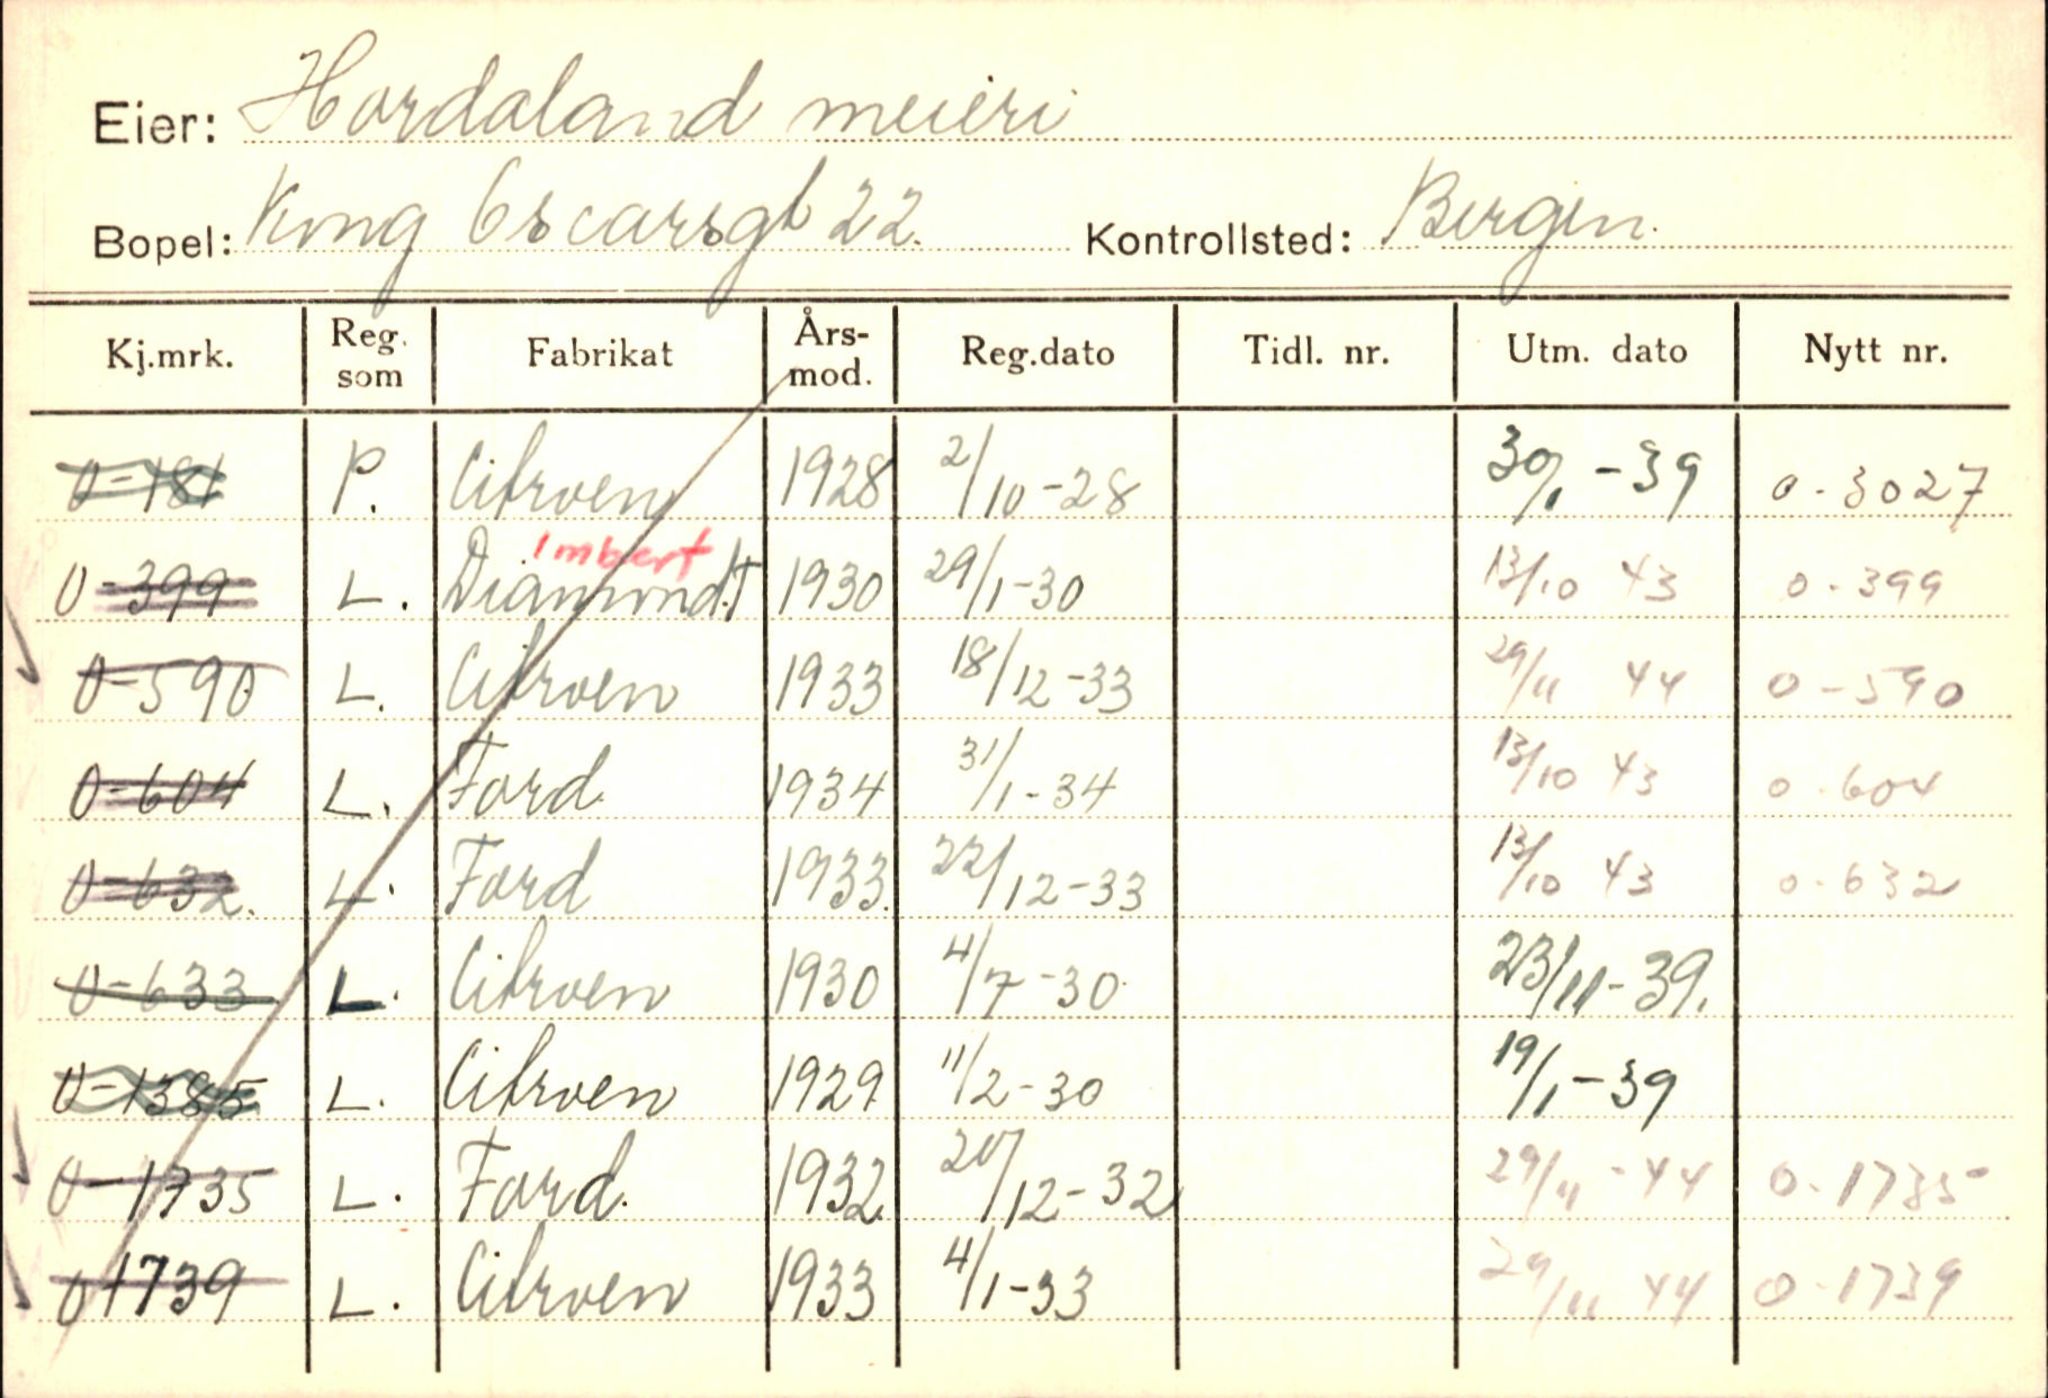 Eier: Hordaland meieri
Bopel: Kong Oscarsgt 22. Kontrollsted: Bergen.
Kj.mrk. Reg. som Fabrikat Års-mod. Reg.dato Tidl. nr. Utm. dato Nytt nr.
O-181 P. Citroen 1928 2/10-28 30/1-39 O-3027
Imbert
O-399 L. DiamondT 1930 29/1-30 13/10 43 O-399
O-590 L. Citroen 1933 18/12-33 29/11 44 O-590
O-604 L. Ford. 1934 31/1-34 13/10 43 O-604
O-632. L. Ford 1933. 22/12-33 13/10 43 O-632
O-633 L. Citroen 1930 4/7-30. 23/11-39.
O-1385 L. Citroen 1929 11/2-30 19/1-39
O-1735 L. Ford. 1932. 20/12-32 29/11-44 O-1735
O-1739 L. Citroen 1933 4/1-33 29/11 44 O-1739